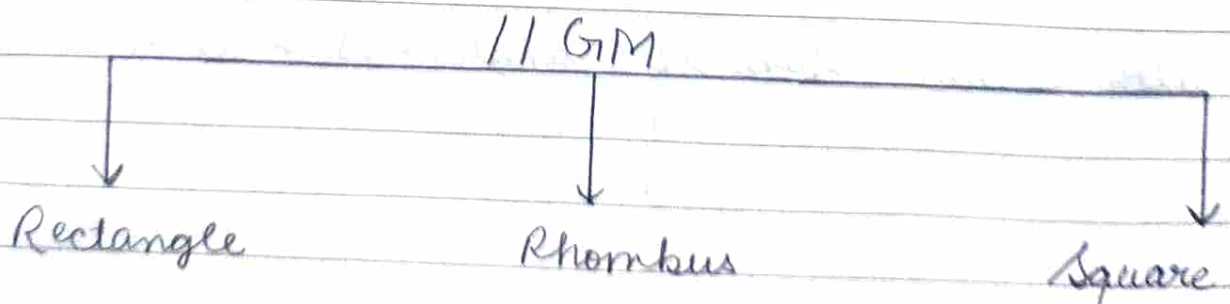 //GM
Rectangle Rhombus Square